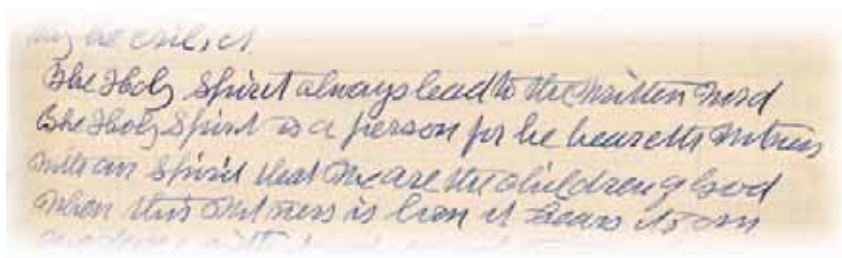 The Holy Spirit always lead to the written word
The Holy Spirit is a person for he beareth witness
with our spirit that we are the children of God
When this witness is born it bears its own